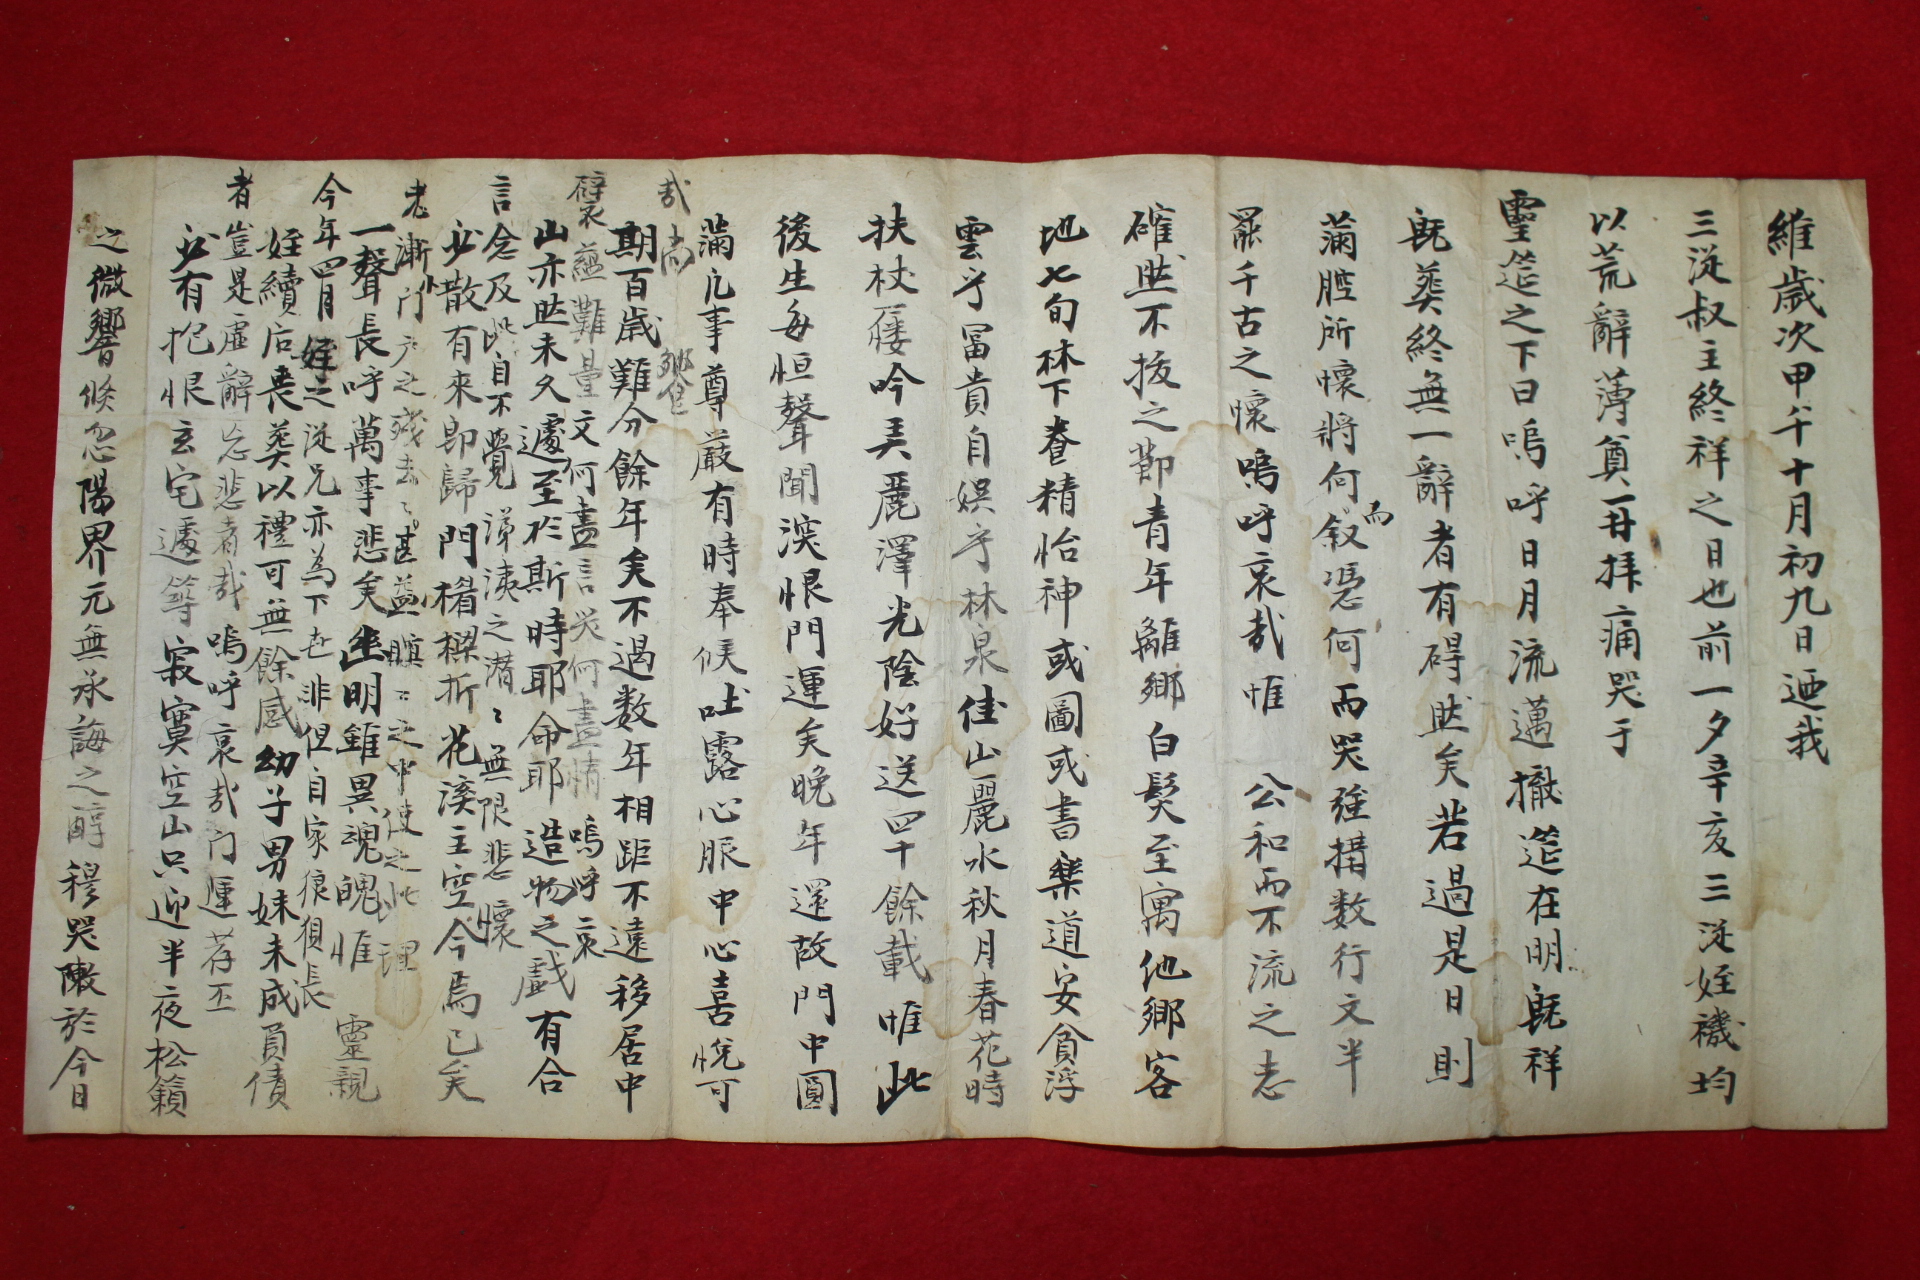 維歲次甲午十月初九日迺我
三從叔主終祥之日也前一夕辛亥三從姪禨均
以荒辭薄奠再拜痛哭于
靈筵之下曰嗚呼日月流邁撤筵在明旣祥
旣葬終無一辭者有碍然矣若過是日則
滿腔所懷將何而叙憑何而哭强搆数行文半
罷千古之懷嗚呼哀哉惟 公和而不流之志
確然不拔之節青年離鄉白髮至寓他鄉客
地七旬林下養精怡神或圖或書樂道安貧浮
雲乎冨貴自娛乎林泉佳山麗水秋月春花時
扶杖屨吟美麗澤光陰好送四十餘載惟此
後生每恒聲聞深恨門運矣晩年還故門中圓
滿凡事尊嚴有時奉候吐露心服中心喜悅可
哉尚 鄉食
期百歲難分餘年矣不過数年相距不遠移居中
襞蘊難量文何盡言哭何盡情 嗚呼哀
山亦然未久遽至於斯時耶命耶造物之戱有合
言念及此自不覺涕洟之潜ミ無限悲懷
少散有來即歸門楣樑折花溪主空今焉已矣
老漸門户之殘去ミ甚益瞋ミ之中使之此理
一聲長呼萬事悲矣幽明雖異魂魄惟 靈親
今年四月姪之從兄亦為下世非但自家狼狽長
姪續后喪葬以禮可無餘感幼子男妹未成負債
者豈是虛辭忘悲者哉 嗚呼哀哉門運荐丕
少有抱恨玄宅遽等寂寞空山只迎半夜松籟
之微響倏忽陽界元無承誨之醇穆哭陳於今日